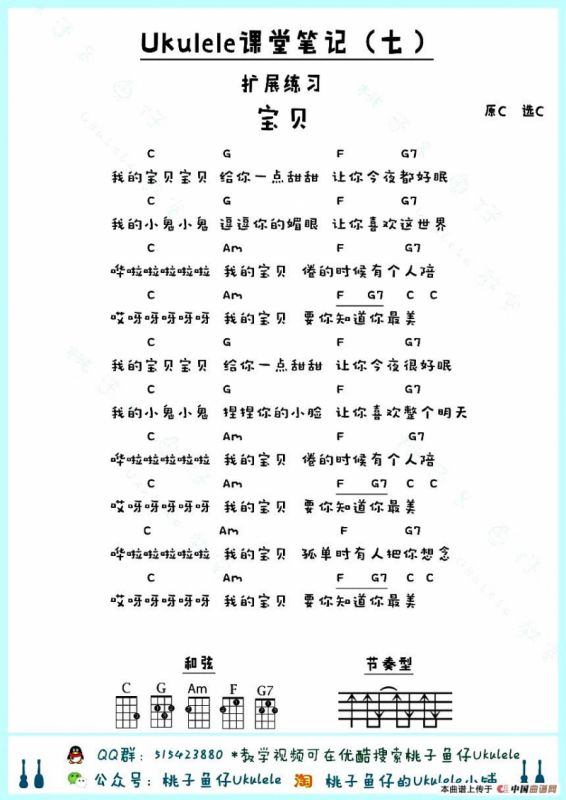 Ukulele课堂笔记（七）
扩展练习
宝贝
原C 选C
C G F G7
我的宝贝宝贝 给你一点甜甜 让你今夜都好眠
C G F G7
我的小鬼小鬼 逗逗你的媚眼 让你喜欢这世界
C Am F G7
哗啦啦啦啦啦 我的宝贝 倦的时候有个人陪
C Am F G7 C C
哎呀呀呀呀呀 我的宝贝 要你知道你最美
C G F G7
我的宝贝宝贝 给你一点甜甜 让你今夜很好眠
C G F G7
我的小鬼小鬼 捏捏你的小脸 让你喜欢整个明天
C Am F G7
哗啦啦啦啦啦 我的宝贝 倦的时候有个人陪
C Am F G7 C C
哎呀呀呀呀呀 我的宝贝 要你知道你最美
C Am F G7
哗啦啦啦啦啦 我的宝贝 孤单时有人把你想念
C Am F G7 C C
哎呀呀呀呀呀 我的宝贝 要你知道你最美
和弦 节奏型
C G Am F G7
QQ群：515423880 *教学视频可在优酷搜索桃子鱼仔Ukulele
公众号：桃子鱼仔Ukulele 淘 桃子鱼仔的Ukulele小铺
本曲谱上传于 中国曲谱网